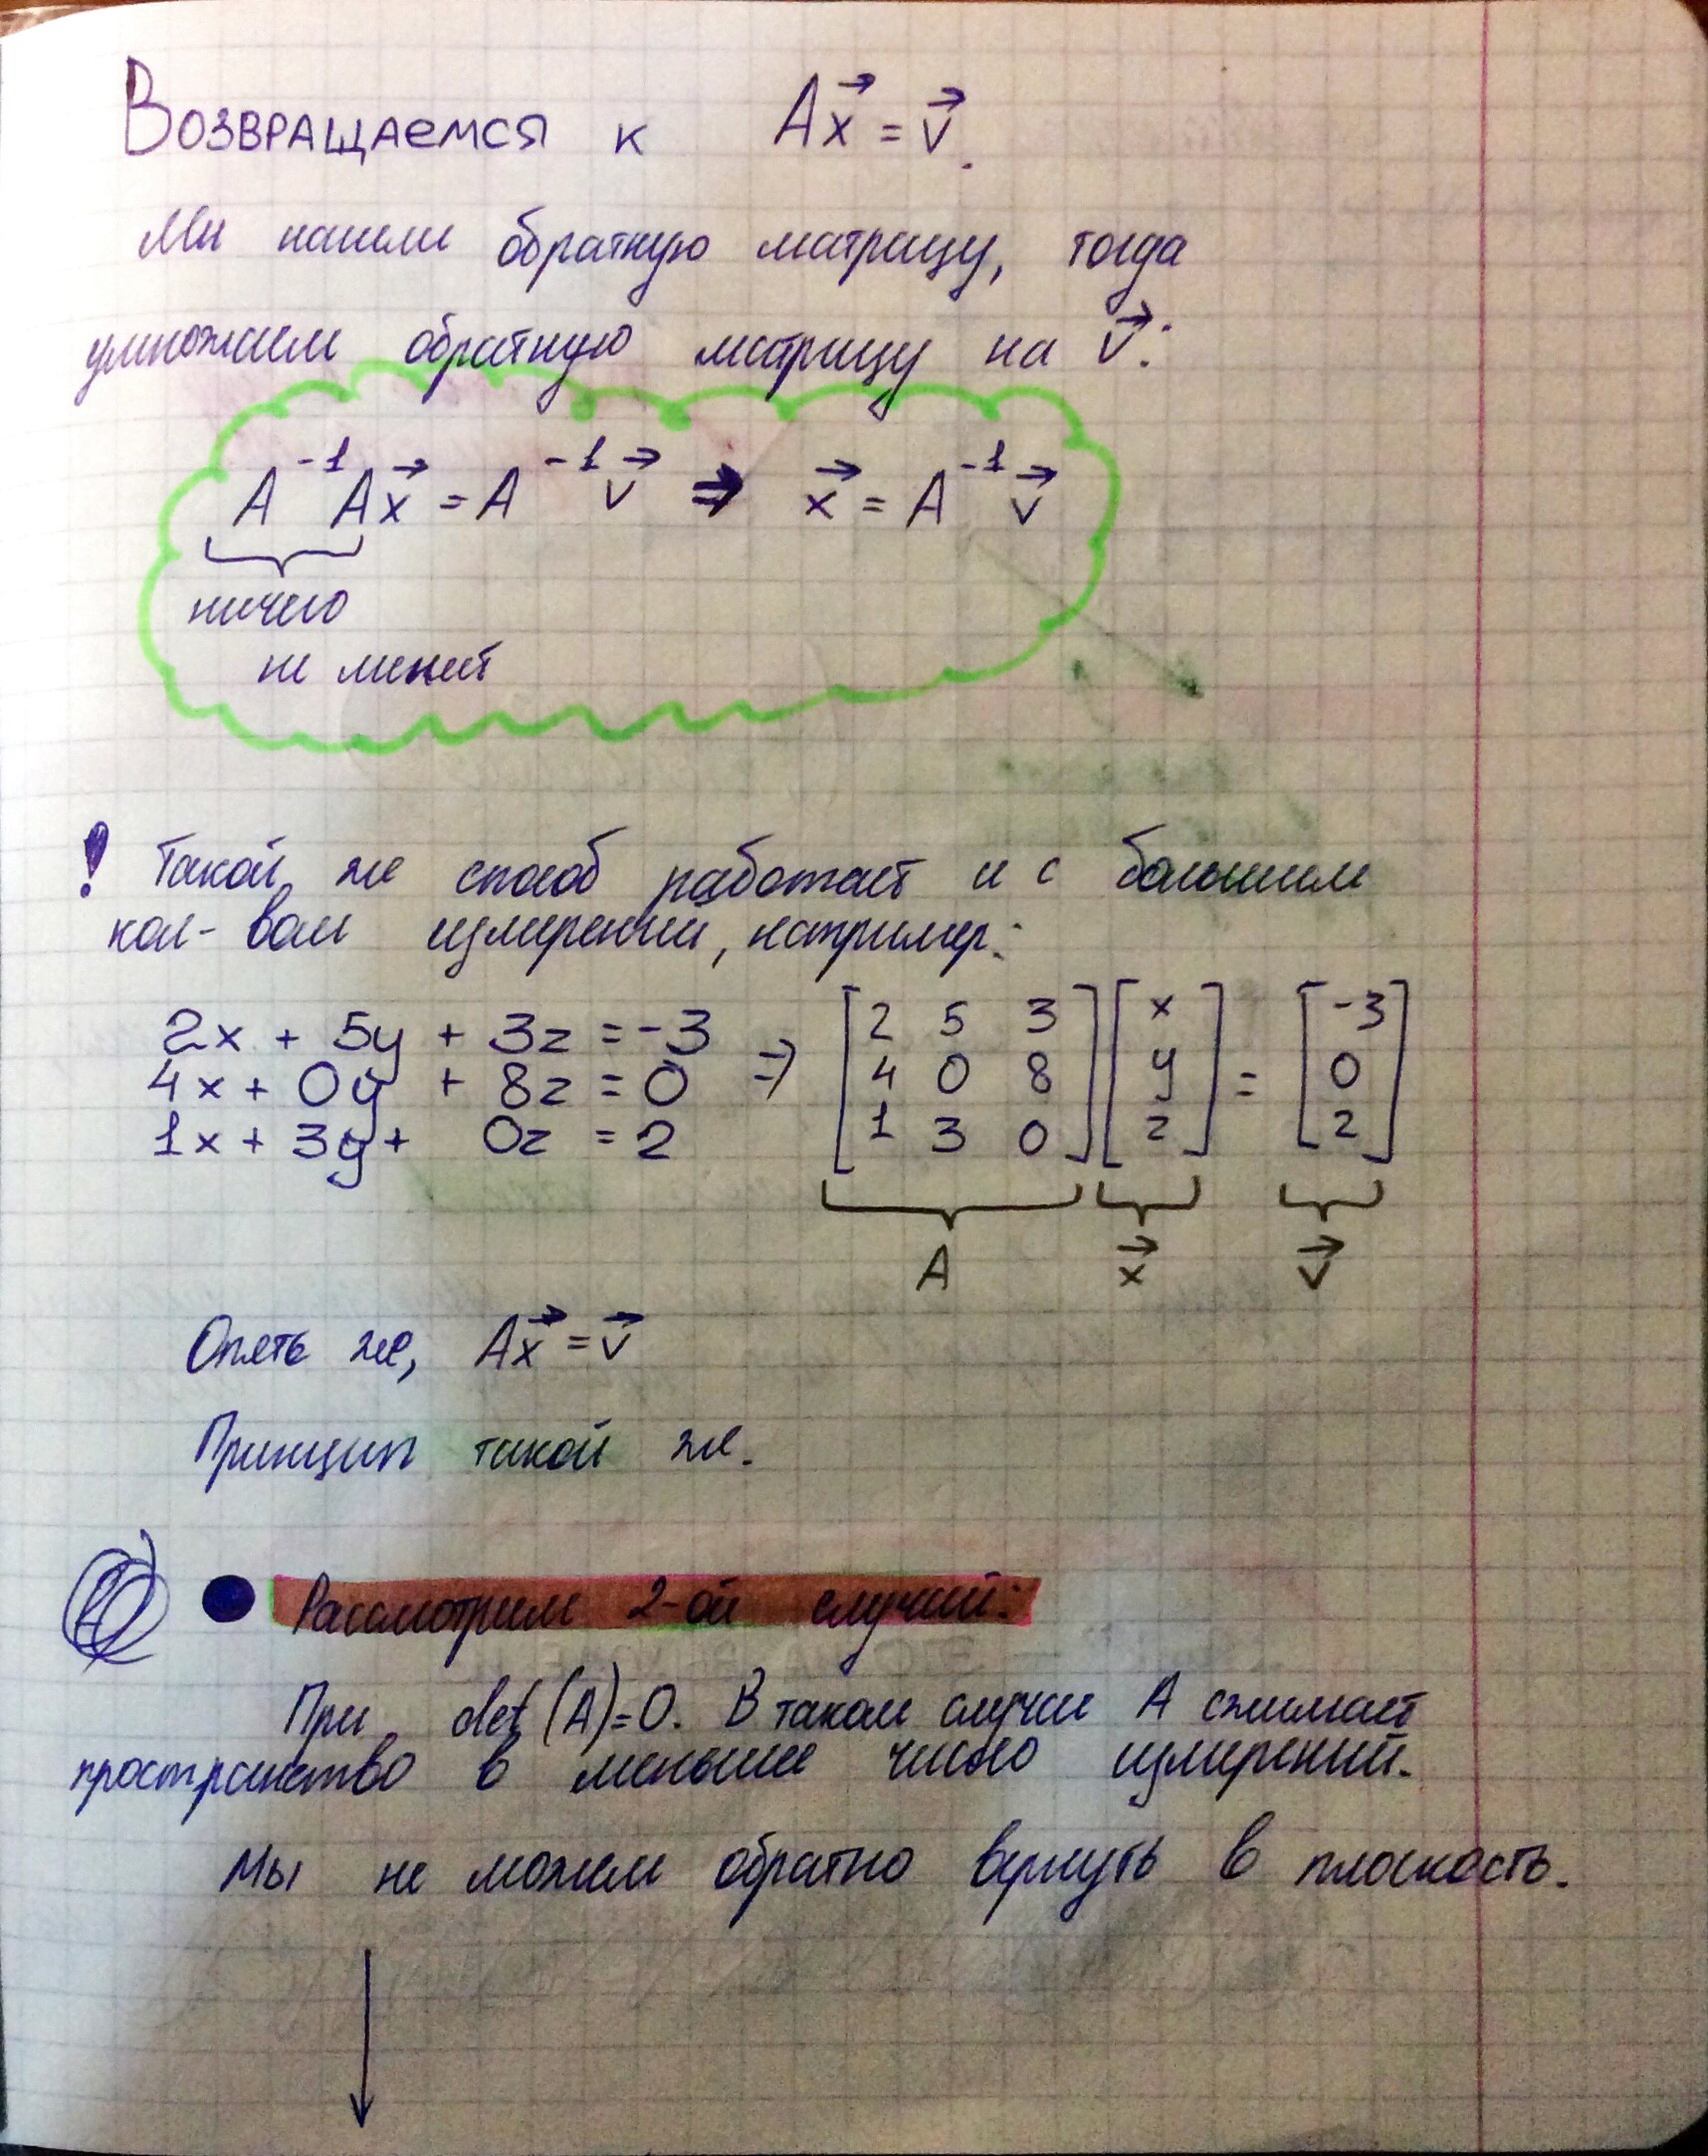 Возвращаемся к Ax⃗ = v⃗.
Мы нашли обратную матрицу, тогда
умножаем обратную матрицу на v⃗:
A⁻¹Ax⃗ = A⁻¹v⃗ ⇒ x⃗ = A⁻¹v⃗
ничего
не меняет
! Такой же способ работает и с большим
кол-вом измерений, например:
2x + 5y + 3z = -3
4x + 0y + 8z = 0
1x + 3y + 0z = 2
⇒
[2 5 3] [x] = [-3]
[4 0 8] [y] = [0]
[1 3 0] [z] = [2]
A x⃗ v⃗
Опять же, Ax⃗ = v⃗
Принцип такой же.
● Рассмотрим 2-ой случай:
При det(A)=0. В таком случае A сжимает
пространство в меньшее число измерений.
Мы не можем обратно вернуть в плоскость.